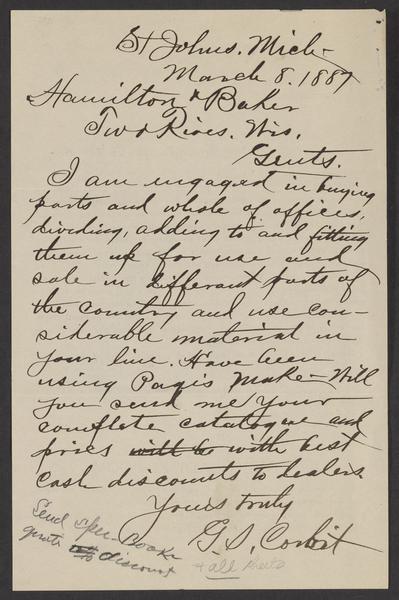 St Johns. Mich-
March 8. 1887
Hamilton & Baker
Two Rivers. Wis.
Gents.
I am engaged in buying
parts and whole of offices,
dividing, adding to and fitting
them up for use and
sale in different parts of
the country and use con-
siderable material in
your line. Have been
using Pagis Make - Will
you send me your
complete catalogue and
prices with best
cash discounts to dealers
Yours truly
G. S. Corbit
Send spec-books
quote discount
+ all sheets